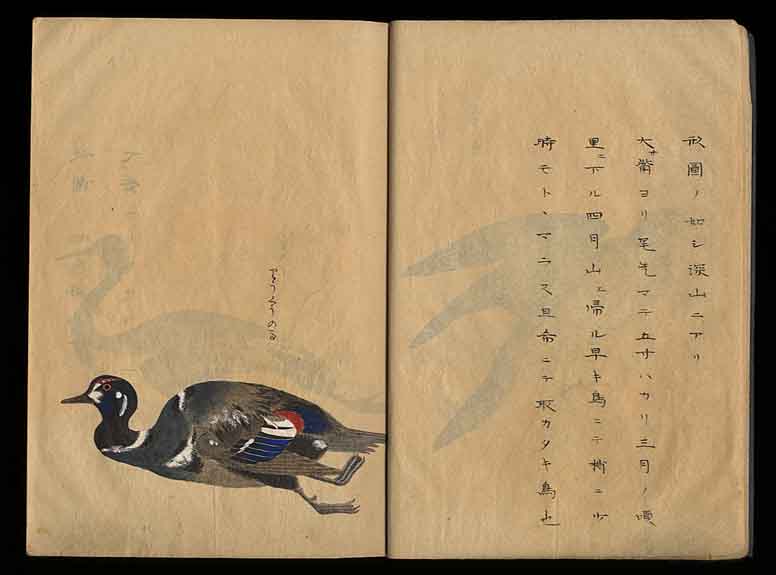 形圖ノ如シ深山ニアリ
大サ觜ヨリ尾先マテ五寸ハカリ三月ノ頃
里ニ下ル四月山ニ帰ル早キ鳥ニテ樹ニ少
時モトヽマラス且希ニテ取カタキ鳥也